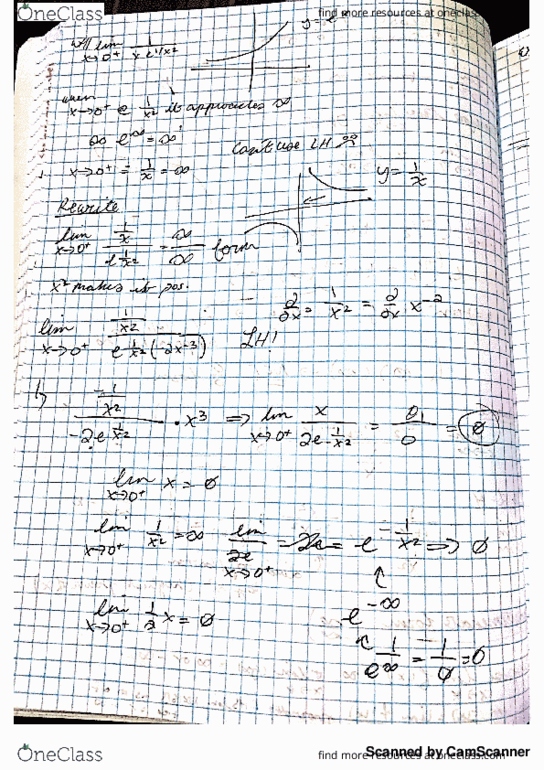 OneClass
find more resources at oneclass
lim x→0⁺ 1/(x e^(1/x²))
y = e
when
x→0⁺ e^(1/x²) it approches ∞
∞ e^∞ = ∞
Can't use LH
x→0⁺ = 1/x = ∞
y = 1/x
Rewrite
lim x→0⁺ (1/x)/(e^(1/x²)) = ∞/∞ form
x² makes it pos.
∂/∂x 1/x² = ∂/∂x x⁻²
lim x→0⁺ (1/x²)/(e^(1/x²)(-2x⁻³)) LH!
↳ (-1/x²)/(-2e^(1/x²)) · x³ ⇒ lim x→0⁺ x/(2e^(-1/x²)) = 0/0 = 0
lim x→0⁺ x = 0
lim x→0⁺ 1/x² = ∞ lim x→0⁺ /2e = e^(-1/x²) ⇒ 0
↑
e^(-∞)
lim x→0⁺ 1/2 x = 0
1/e^∞ = 1/0 = 0
OneClass
find more resources at oneclass.com
Scanned by CamScanner